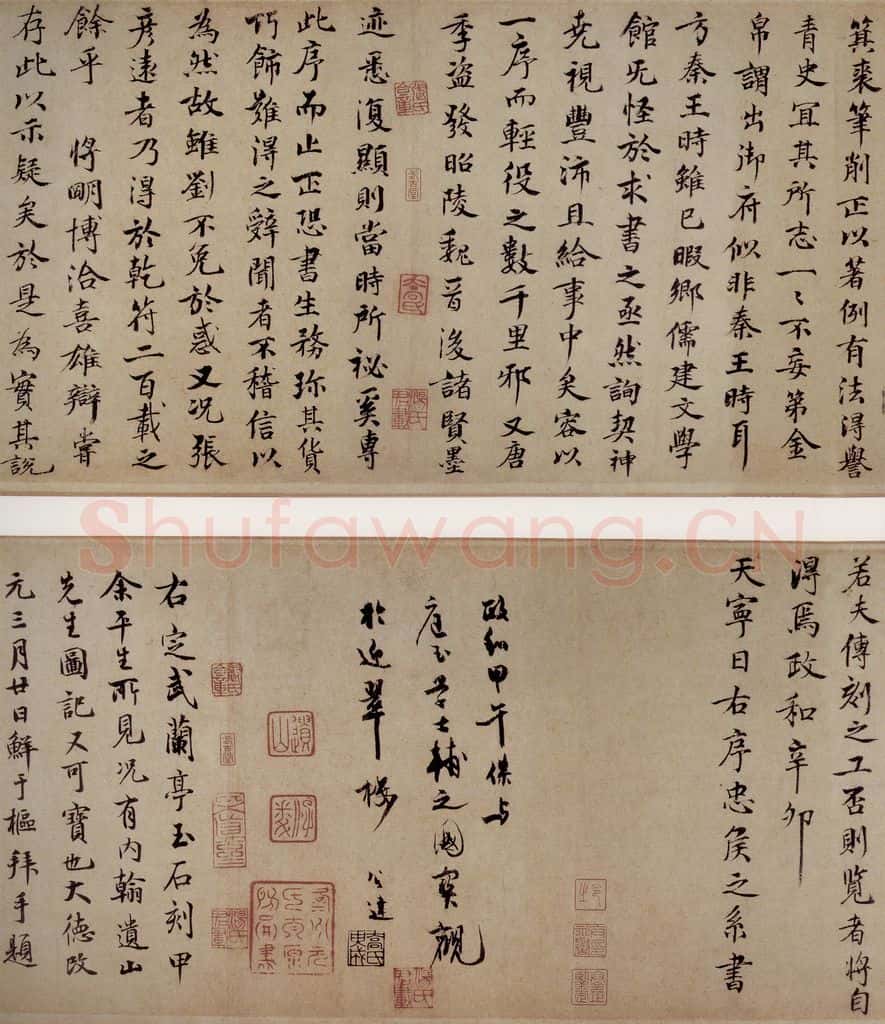 箕裘筆削正以著例有法得譽
青史冝其所志一々不妄第金
帛謂出御府似非秦王時耳
方秦王時雖已暇鄉儒建文學
館旡怪於求書之亟然詢契神
堯視豐沛且給事中矣容以
一序而輕役之數千里邪又唐
季盜發昭陵魏晉後諸賢墨
迹悉復顯則當時所祕奚專
此序而止正恐書生務珎其貨
巧飾難得之辭聞者不稽信以
為然故雖劉不免於惑又况張
彥遠者乃得於乾符二百載之
餘乎 將朙博洽喜雄辯嘗
存此以示疑矣於是為實其說
Shufawang.CN
若夫傳刻之工否則覽者將自
得焉政和辛卯
天寧日右序忠矦之系書
政和甲午
輔之國寶觀
於迩翠
右定武蘭亭玉石刻甲
余平生所見况有内翰遺山
先生圖記又可寶也大德改
元三月廿日鮮于樞拜手題